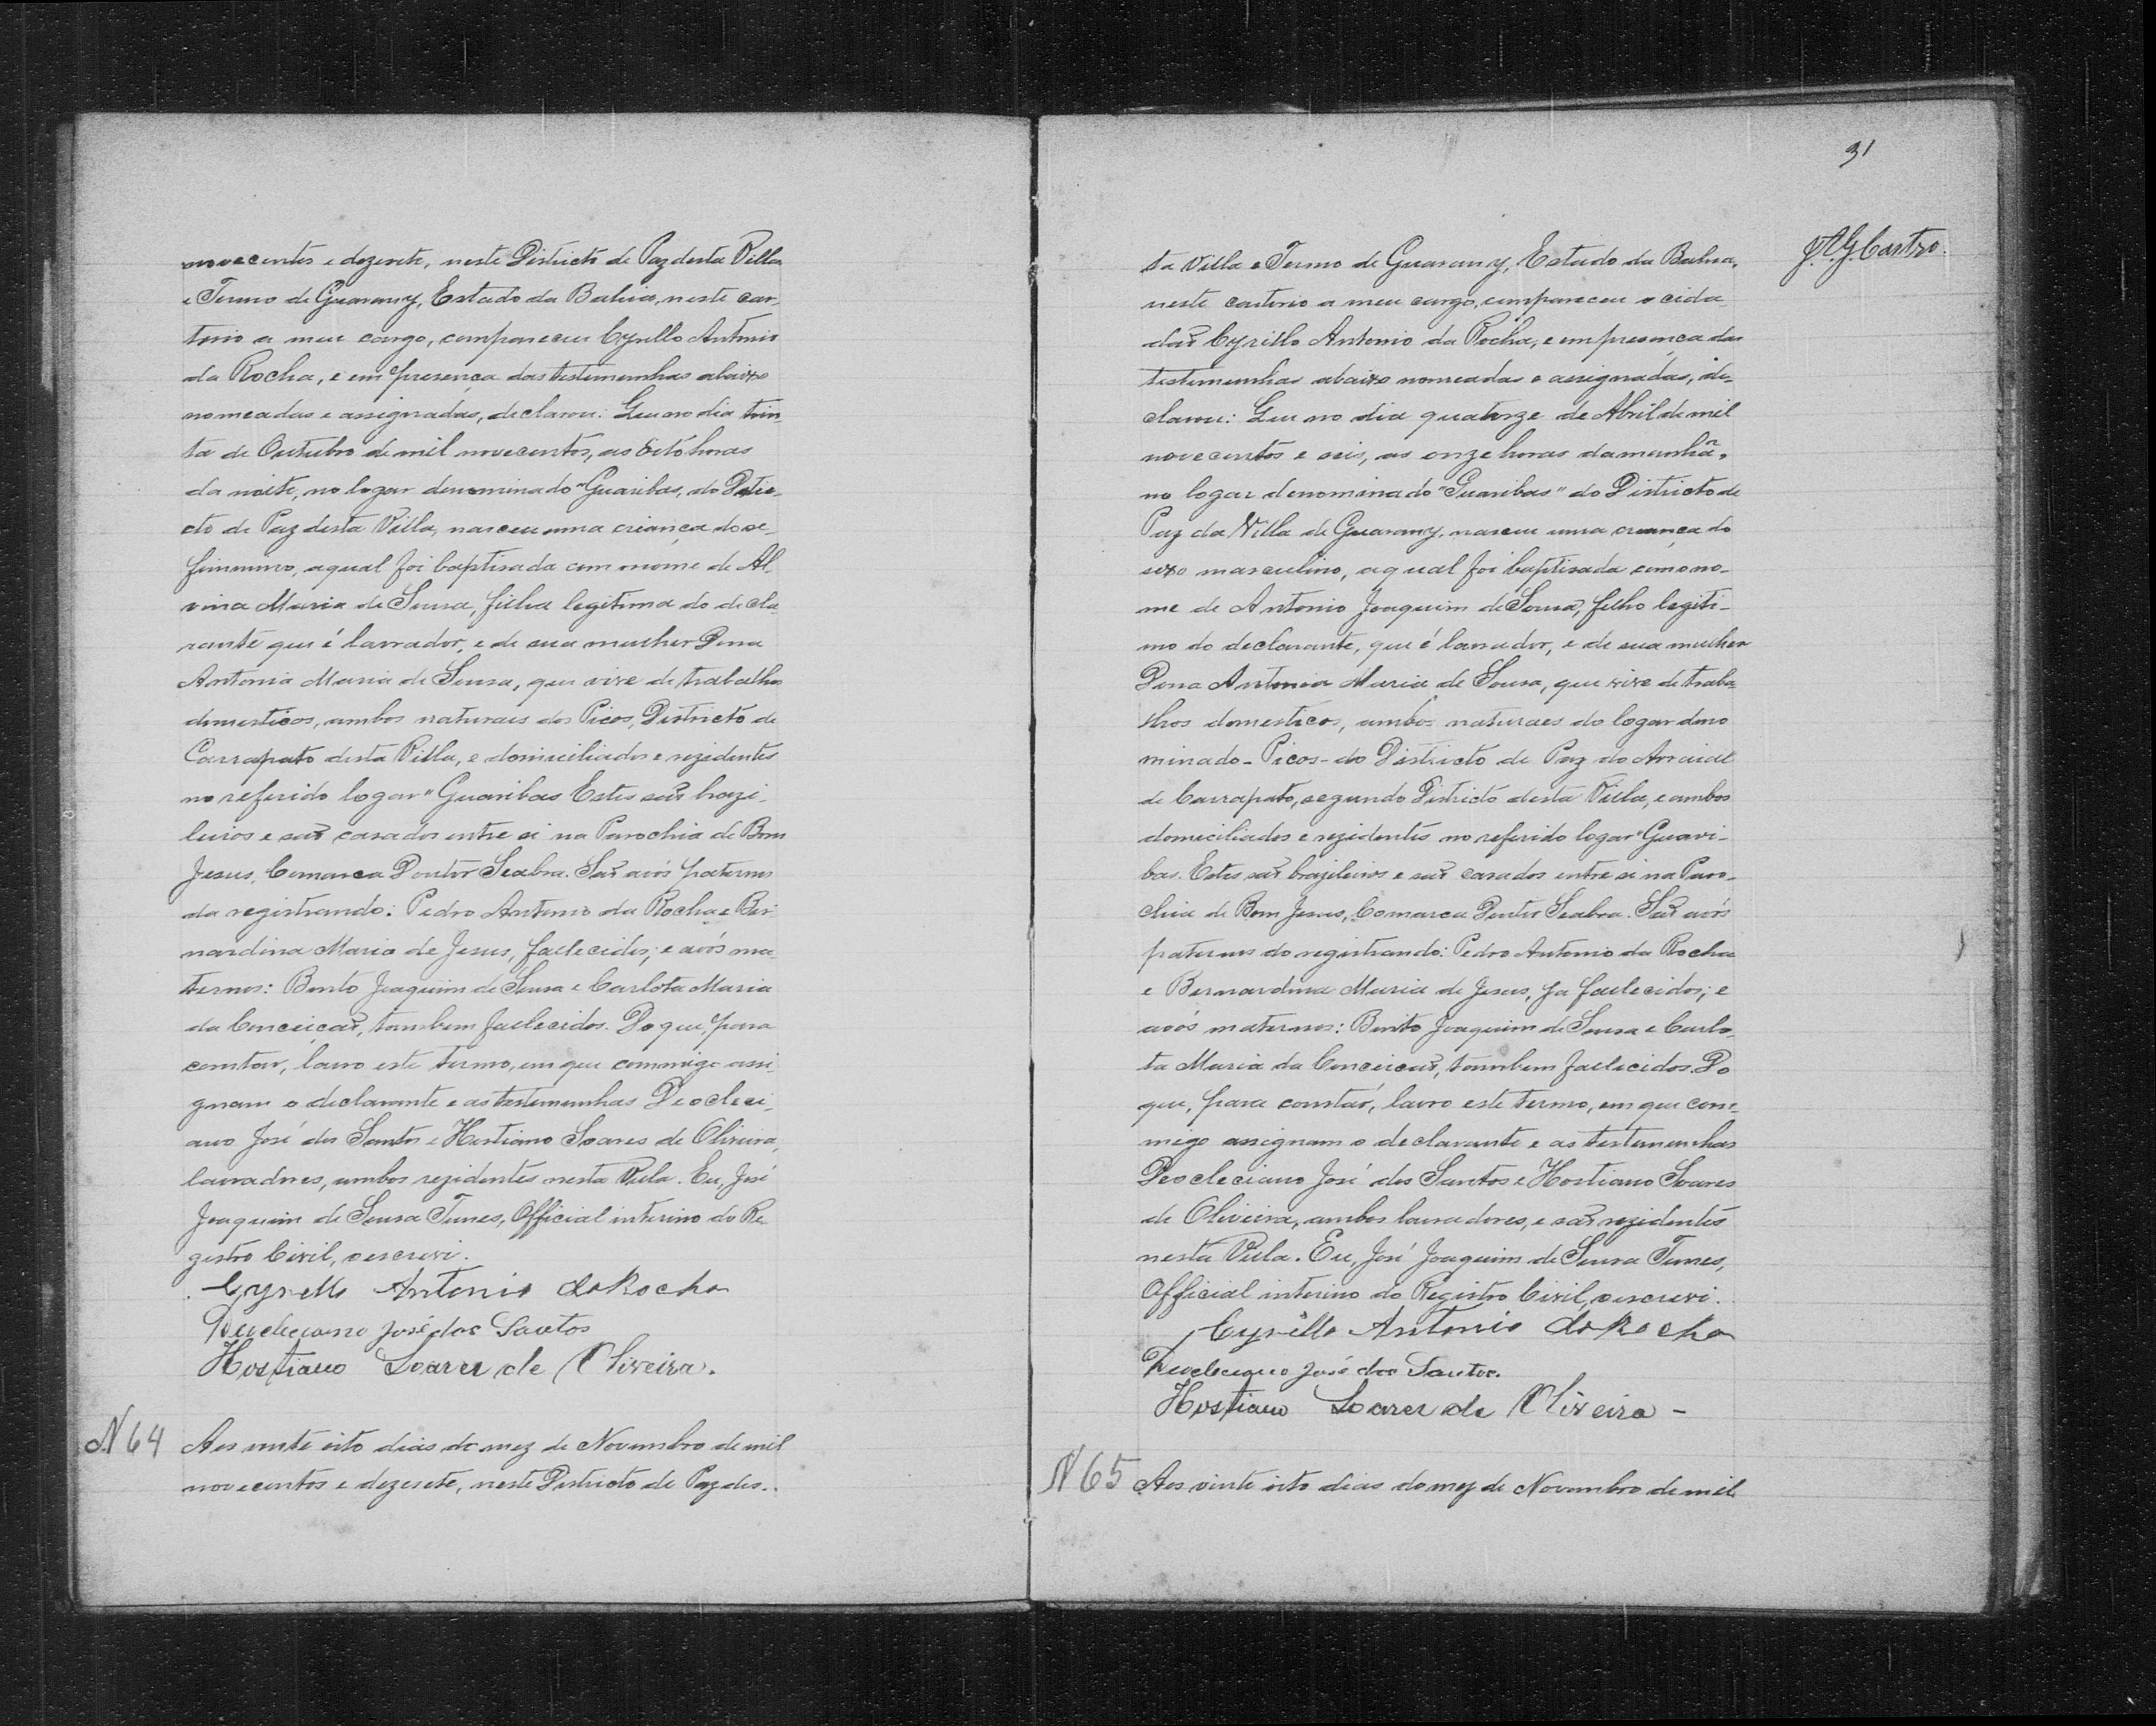 novecentos e dezesete, neste Districto de Paz desta Villa
e Termo de Guarany, Estado da Bahia, neste car-
torio a meu cargo, compareceu Cyrillo Antonio
da Rocha, e em presença das testemunhas abaixo
nomeadas e assignadas, declarou: Que no dia trin-
ta de Outubro de mil novecentos, as oitó horas
da noite, no logar denominado "Guaribas, do Distri-
cto de Paz desta Villa, nasceu uma criança do se-
feminino, aqual foi baptisada com nome de Al-
vina Maria de Sousa, filha legitima do decla-
rante que é lavrador, e de sua mulher Dona
Antonia Maria de Sousa, que vive de trabalhos
domesticos, ambos naturais dos Picos, Districto de
Carrapato desta Villa, e domiciliados e rezidentes
no referido logar "Guaribas Estes são brazi-
leiros e são casados entre si na Parochia de Bom
Jesus, Comarca Doutor Seabra. São avós paternos
da registrando: Pedro Antonio da Rocha e Ber-
nardina Maria de Jesus, fallecidos; e avós ma-
ternos: Bento Joaquim de Sousa e Carlota Maria
da Conceição, tambem fallecidos. Do que, para
constar, lavro este termo, em que commigo assi-
gnam o declarante e as testemunhas Deocleci-
ano José dos Santos e Hostiano Soares de Oliveira,
lavradores, ambos rezidentes nesta Villa. Eu, José
Joaquim de Sousa Tunes, Official interino do Re-
gistro Civil, o escrevi.
Cyrillo Antonio da Rocha
Deocleciano José dos Santos
Hostiano Soares de Oliveira.
N 64 Aos vinte oito dias do mez de Novembro de mil
novecentos e dezesete, neste Districto de Paz des..
31
J. A. G. Castro.
ta Villa e Termo de Guarany, Estado da Bahia,
neste cartorio a meu cargo, compareceu o cida-
dão Cyrillo Antonio da Rocha, e em presença das
testemunhas abaixo nomeadas e assignadas, de-
clarou: Que no dia quatorze de Abril de mil
novecentos e seis, as onze horas da manhã,
no logar denominado "Guaribas" do Districto de
Paz da Villa de Guarany, nasceu uma creança do
sexo masculino, aqual foi baptisada com o no-
me de Antonio Joaquim de Sousa, filho legiti-
mo do declarante, que é lavrador, e de sua mulher
Dona Antonia Maria de Sousa, que vive de traba-
lhos domesticos, ambos naturaes do logar deno
minado - Picos - do Districto de Paz do Arraial
de Carrapato, segundo Districto desta Villa, e ambos
domiciliados e rezidentes no referido logar "Guari-
bas. Estes são brazileiros e são casados entre si na Paro-
chia de Bom Jesus, Comarca Doutor Seabra. São avós
paternos do registrando: Pedro Antonio da Rocha
e Bernardina Maria de Jesus, ja fallecidos; e
avós maternos: Bento Joaquim de Sousa e Carlo-
ta Maria da Conceição, tambem fallecidos. Do
que, para constar, lavro este termo, em que com-
migo assignam o declarante e as testemunhas
Deocleciano José dos Santos e Hostiano Soares
de Oliveira, ambos lavradores, e são rezidentes
nesta Villa. Eu, José Joaquim de Sousa Tunes,
Official interino do Registro Civil, o escrevi.
Cyrillo Antonio da Rocha
Deocleciano José dos Santos.
Hostiano Soares de Oliveira -
N 65 Aos vinte oito dias do mez de Novembro de mil